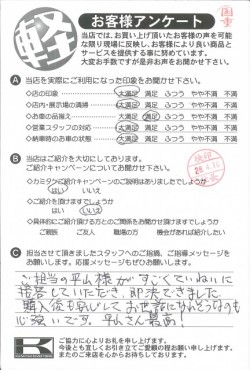 軽
お客様アンケート
当店では、お買い上げ頂いたお客様の声を可能
な限り現場に反映し、お客様により良い商品と
サービスを提供する事に努めています。
大変お手数ですが是非お声をお聞かせ下さい。
A 当店を実際にご利用になった印象をお聞かせ下さい。
◇店の印象 大満足 満足 ふつう やや不満 不満
◇店内・展示場の清掃 大満足 満足 ふつう やや不満 不満
◇お車の品揃え 大満足 満足 ふつう やや不満 不満
◇営業スタッフの対応 大満足 満足 ふつう やや不満 不満
◇納車時のお車の状態 大満足 満足 ふつう やや不満 不満
B 当店はご紹介を大切にしております。
ご紹介キャンペーンについてお聞かせ下さい。
◇カミタケご紹介キャンペーンのご説明はありましたでしょうか
はい いいえ
◇ご紹介を頂けますでしょうか
はい いいえ
◇具体的にご紹介頂ける方とのご関係をお聞かせ頂けますでしょうか
ご親族 ご友人 職場の方 機会があれば紹介したい
C 担当させて頂きましたスタッフへのご指摘、ご指導メッセージを
お願いします。応援メッセージもぜひお願いします。
ご担当の平山様がすごくていねいに
接客していただき、即決できました
購入後も安心してお世話になれそうなのも
心強いです。平山さん最高!
K
ご協力に心よりお礼を申し上げます。
今後とも宜しくお引き立てご愛顧の程お願い申し上げます。
またのご来店を心からお待ちしております。